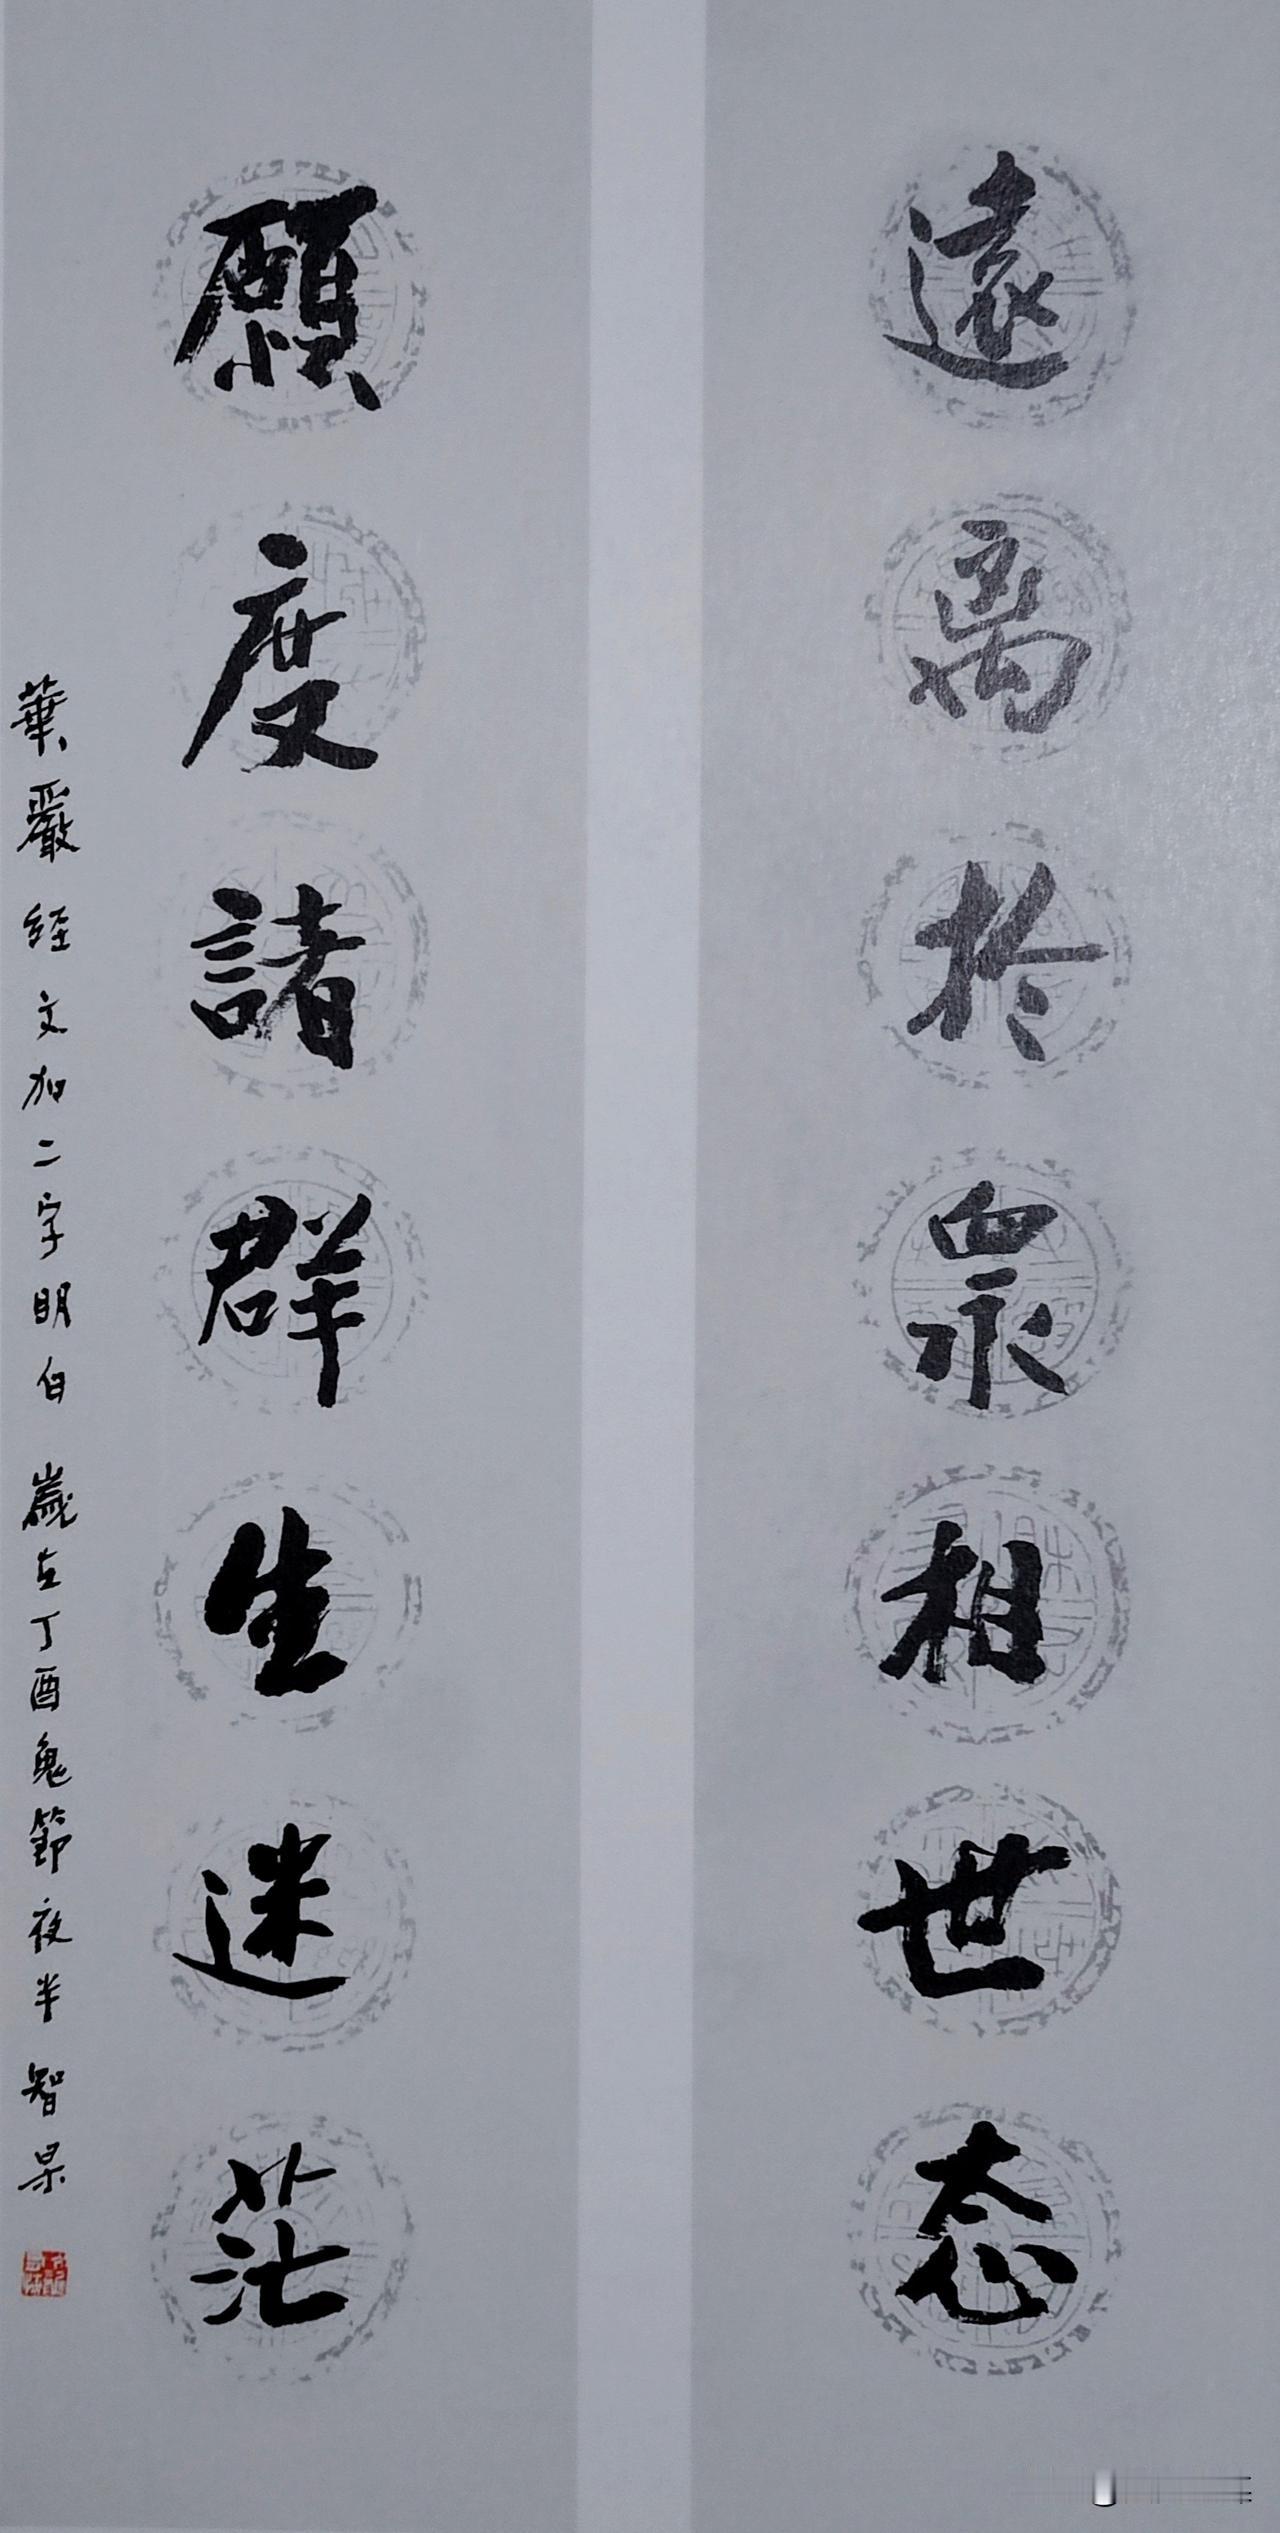 遠离於眾相世态
願度諸群生迷茫
華嚴经文加二字明白 歲在丁酉鬼節夜半 智杲